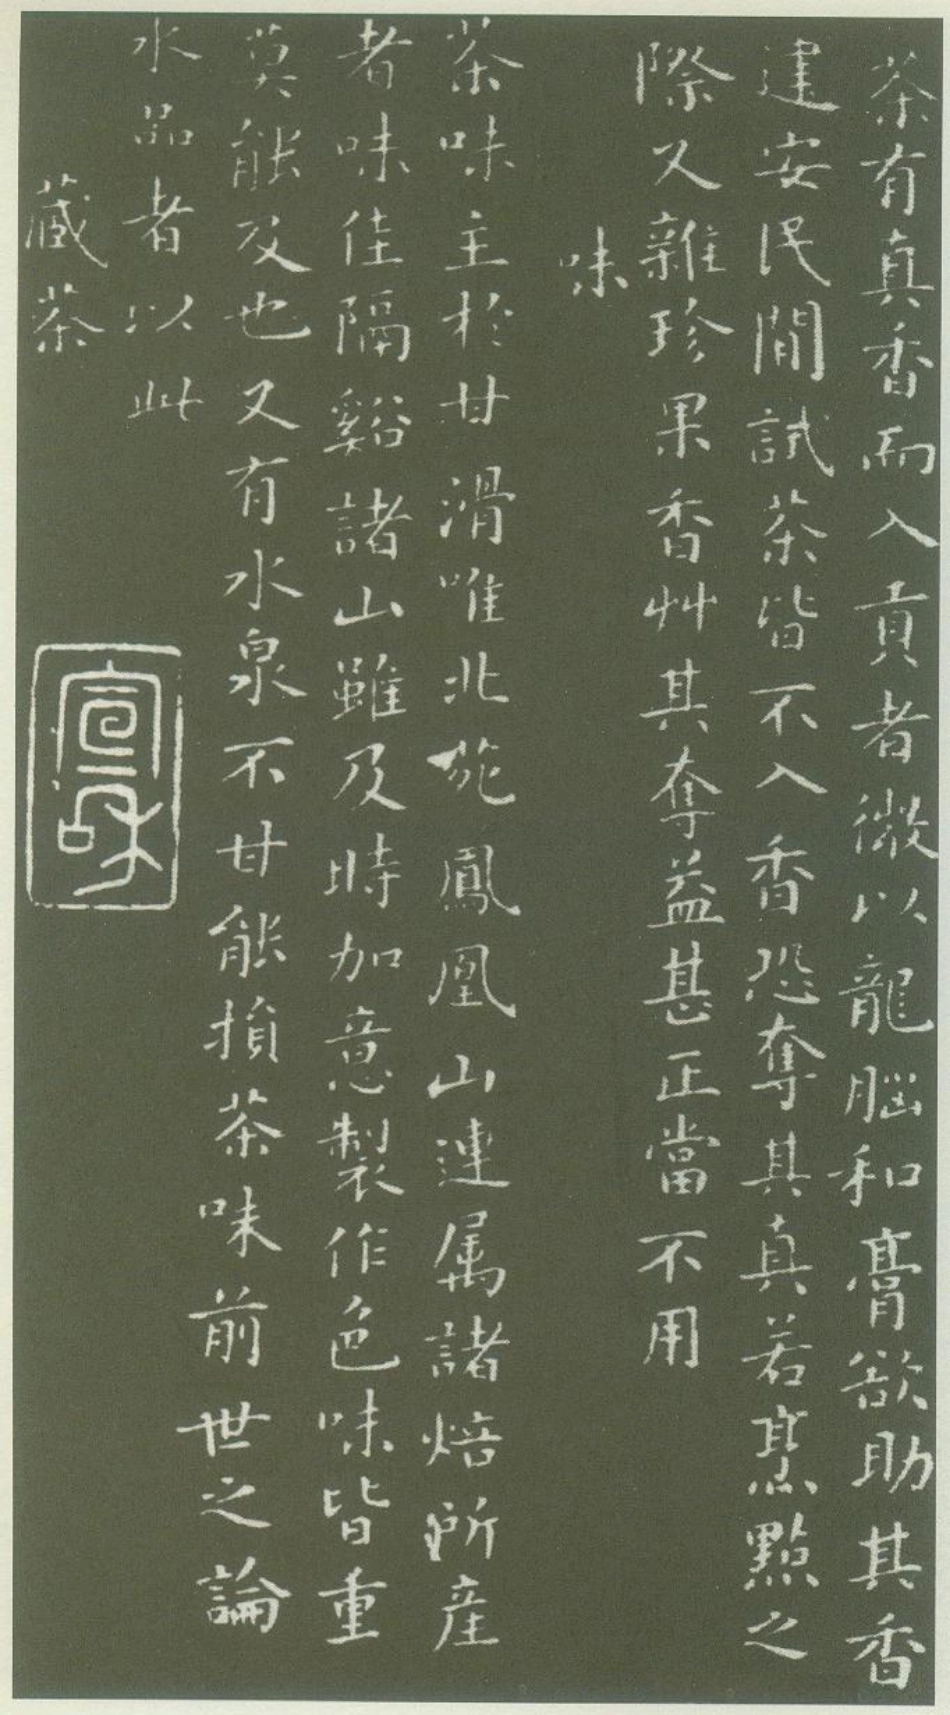 茶有真香而入貢者微以龍腦和膏欲助其香
建安民間試茶皆不入香恐奪其真若烹點之
際又雜珍果香艸其奪益甚正當不用
味
茶味主於甘滑唯北苑鳳凰山連屬諸焙所產
者味佳隔谿諸山雖及時加意製作色味皆重
莫能及也又有水泉不甘能損茶味前世之論
水品者以此
藏茶
宣和